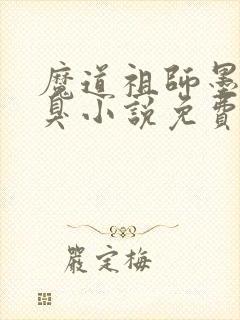 魔道祖師墨
臭小說免費
嚴定梅